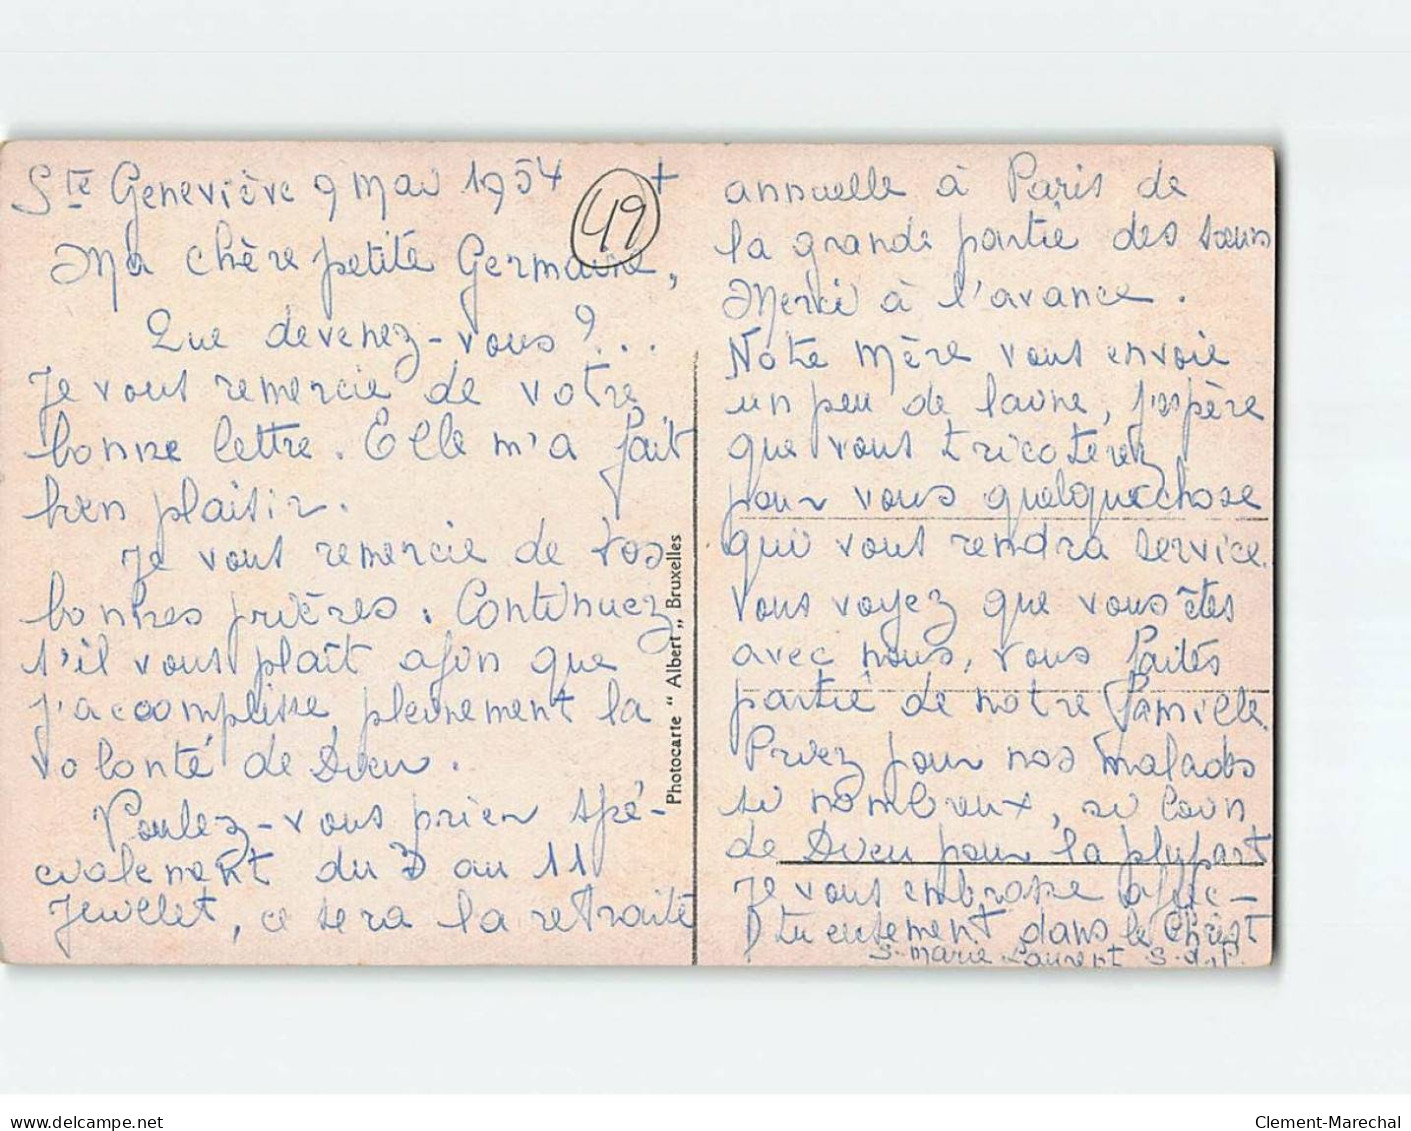 Ste Geneviève 9 Mai 1954 +
49
Ma chère petite Germaine,
Que devenez-vous ? ...
Je vous remercie de votre
bonne lettre. Elle m'a fait
bien plaisir.
Je vous remercie de vos
bonnes prières. Continuez
s'il vous plaît afin que
j'accomplisse pleinement la
volonté de Dieu.
Voulez-vous prier spé-
cialement du 3 au 11
Juillet, ce sera la retraite
annuelle à Paris de
la grande partie des sœurs
Merci à l'avance.
Notre Mère vous envoie
un peu de laine, j'espère
que vous tricoterez
pour vous quelque chose
qui vous rendra service.
Vous voyez que vous êtes
avec nous, vous faites
partie de notre famille.
Priez pour nos malades
si nombreux, si loin
de Dieu pour la plupart
Je vous embrasse affec-
tueusement dans le Christ
S. Marie Laurent S. d. P.
Photocarte " Albert „ Bruxelles
www.delcampe.net
Clement-Marechal